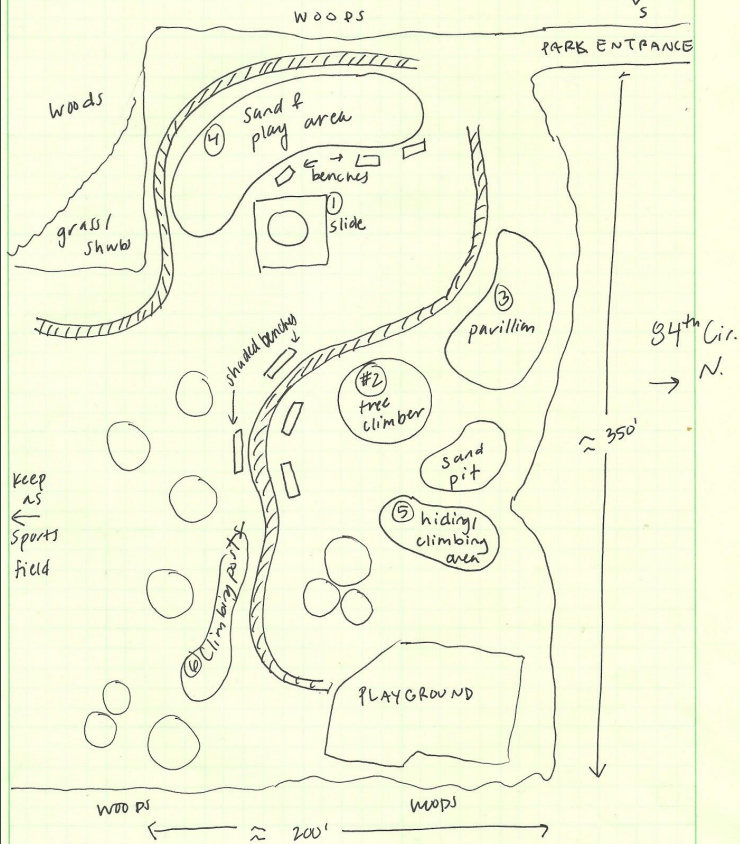 S
WOODS
PARK ENTRANCE
Woods
sand &
play area
④
← → 
benches
①
slide
grass/
shwbs
③
pavillian
84th Cir.
→ N.
shaded benches
#2
tree
climber
≈ 350'
sand
pit
Keep
as
←
Sports
field
⑤ hiding/
climbing
area
⑥ Climbing points
PLAYGROUND
WOODS
WOODS
≈ 200'